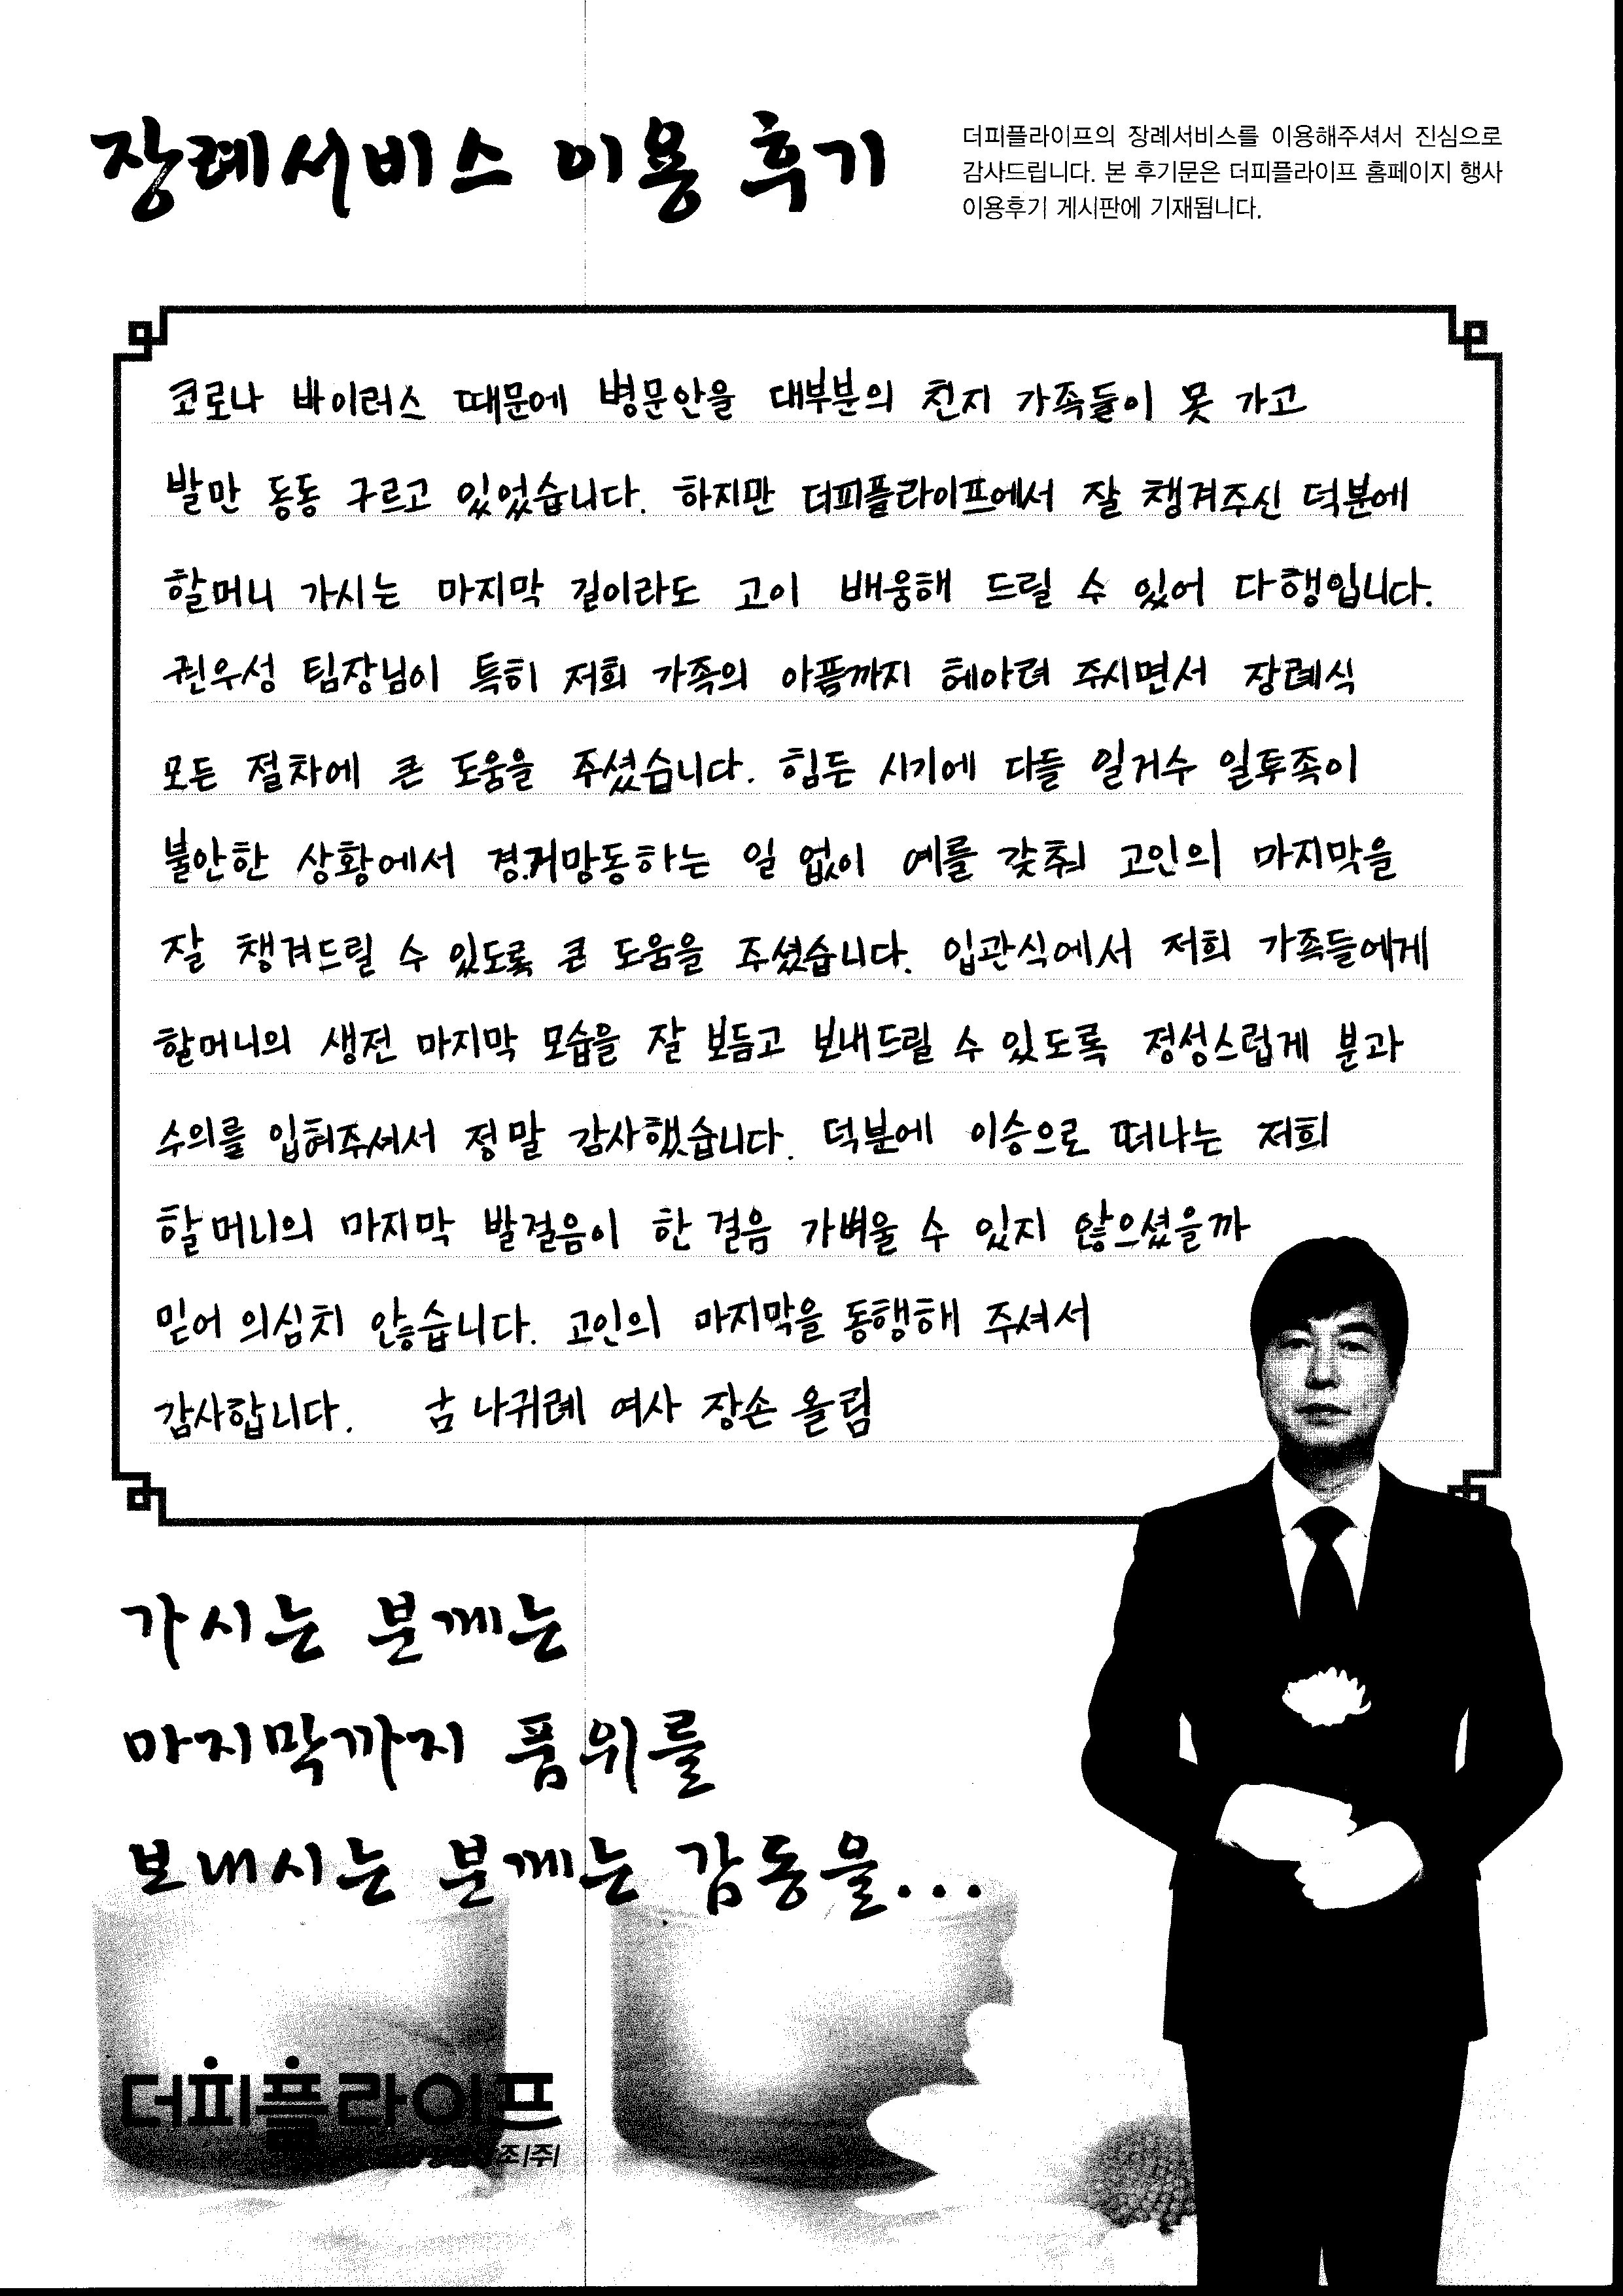 장례서비스 이용 후기
더피플라이프의 장례서비스를 이용해주셔서 진심으로
감사드립니다. 본 후기문은 더피플라이프 홈페이지 행사
이용후기 게시판에 기재됩니다.
코로나 바이러스 때문에 병문안을 대부분의 친지 가족들이 못 가고
발만 동동 구르고 있었습니다. 하지만 더피플라이프에서 잘 챙겨주신 덕분에
할머니 가시는 마지막 길이라도 고이 배웅해 드릴 수 있어 다행입니다.
권우성 팀장님이 특히 저희 가족의 아픔까지 헤아려 주시면서 장례식
모든 절차에 큰 도움을 주셨습니다. 힘든 시기에 다들 일거수 일투족이
불안한 상황에서 경거망동하는 일 없이 예를 갖춰 고인의 마지막을
잘 챙겨드릴 수 있도록 큰 도움을 주셨습니다. 입관식에서 저희 가족들에게
할머니의 생전 마지막 모습을 잘 보듬고 보내드릴 수 있도록 정성스럽게 분과
수의를 입혀주셔서 정말 감사했습니다. 덕분에 이승으로 떠나는 저희
할머니의 마지막 발걸음이 한 걸음 가벼울 수 있지 않으셨을까
믿어 의심치 않습니다. 고인의 마지막을 동행해 주셔서
감사합니다. 古 나귀례 여사 장손 올림
가시는 분께는
마지막까지 품위를
보내시는 분께는 감동을...
더피플라이프
조|주|